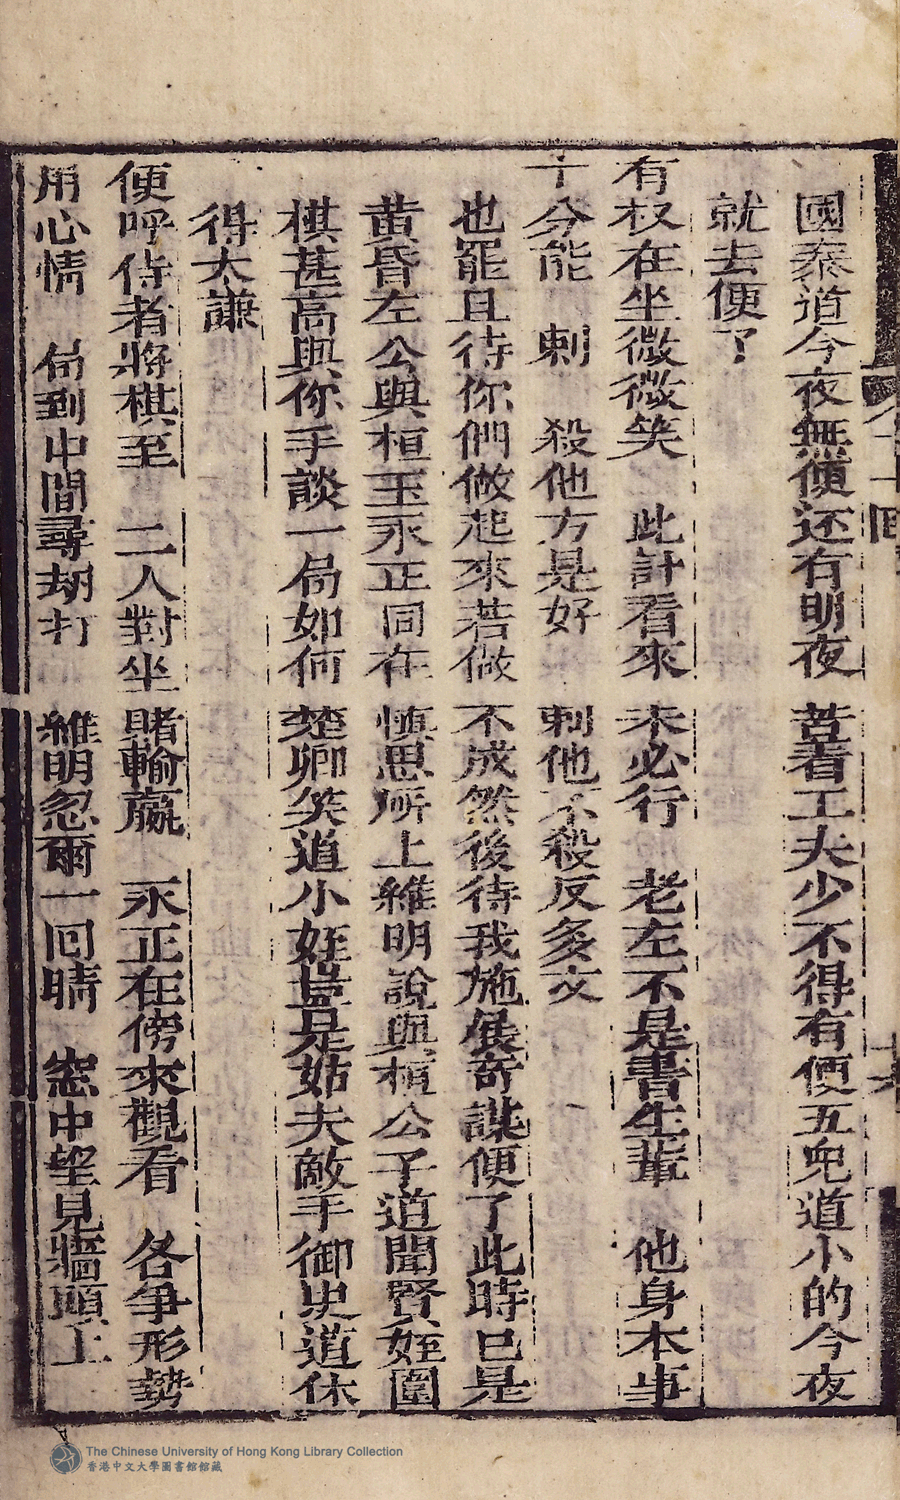 國泰道今夜無便还有明夜苦着工夫少不得有便五兜道小的今夜
就去便了
有权在坐微微笑 此計看來未必行 老左不是書生輩 他身本事
十分能 刺 殺他方是好 刺他不殺反多文
也罷且待你們做起來若做不成然後待我施展奇謀便了此時已是
黄昏左公與桓玉永正同在慎思所上維明說與桓公子道聞賢姪圍
棋甚高與你手談一局如何楚卿笑道小姪豈是姑夫敵手御史道休
得太謙
便呼侍者將棋至 二人對坐賭輸贏 永正在傍來觀看 各争形勢
用心情 局到中間尋劫打 維明忽爾一回睛 窓中望見牆頭上
The Chinese University of Hong Kong Library Collection
香港中文大學圖書館館藏